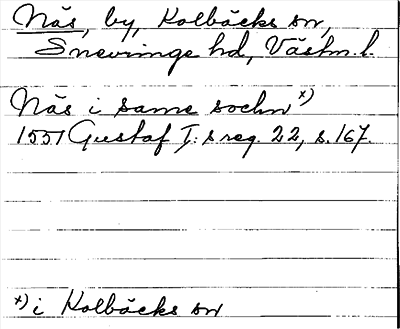 Näs, by, Kolbäcks sn,
Snevringe hd, Västm. l.
Näs i same sochn x)
1551 Gustaf I:s reg. 22, s. 167.
x) i Kolbäcks sn